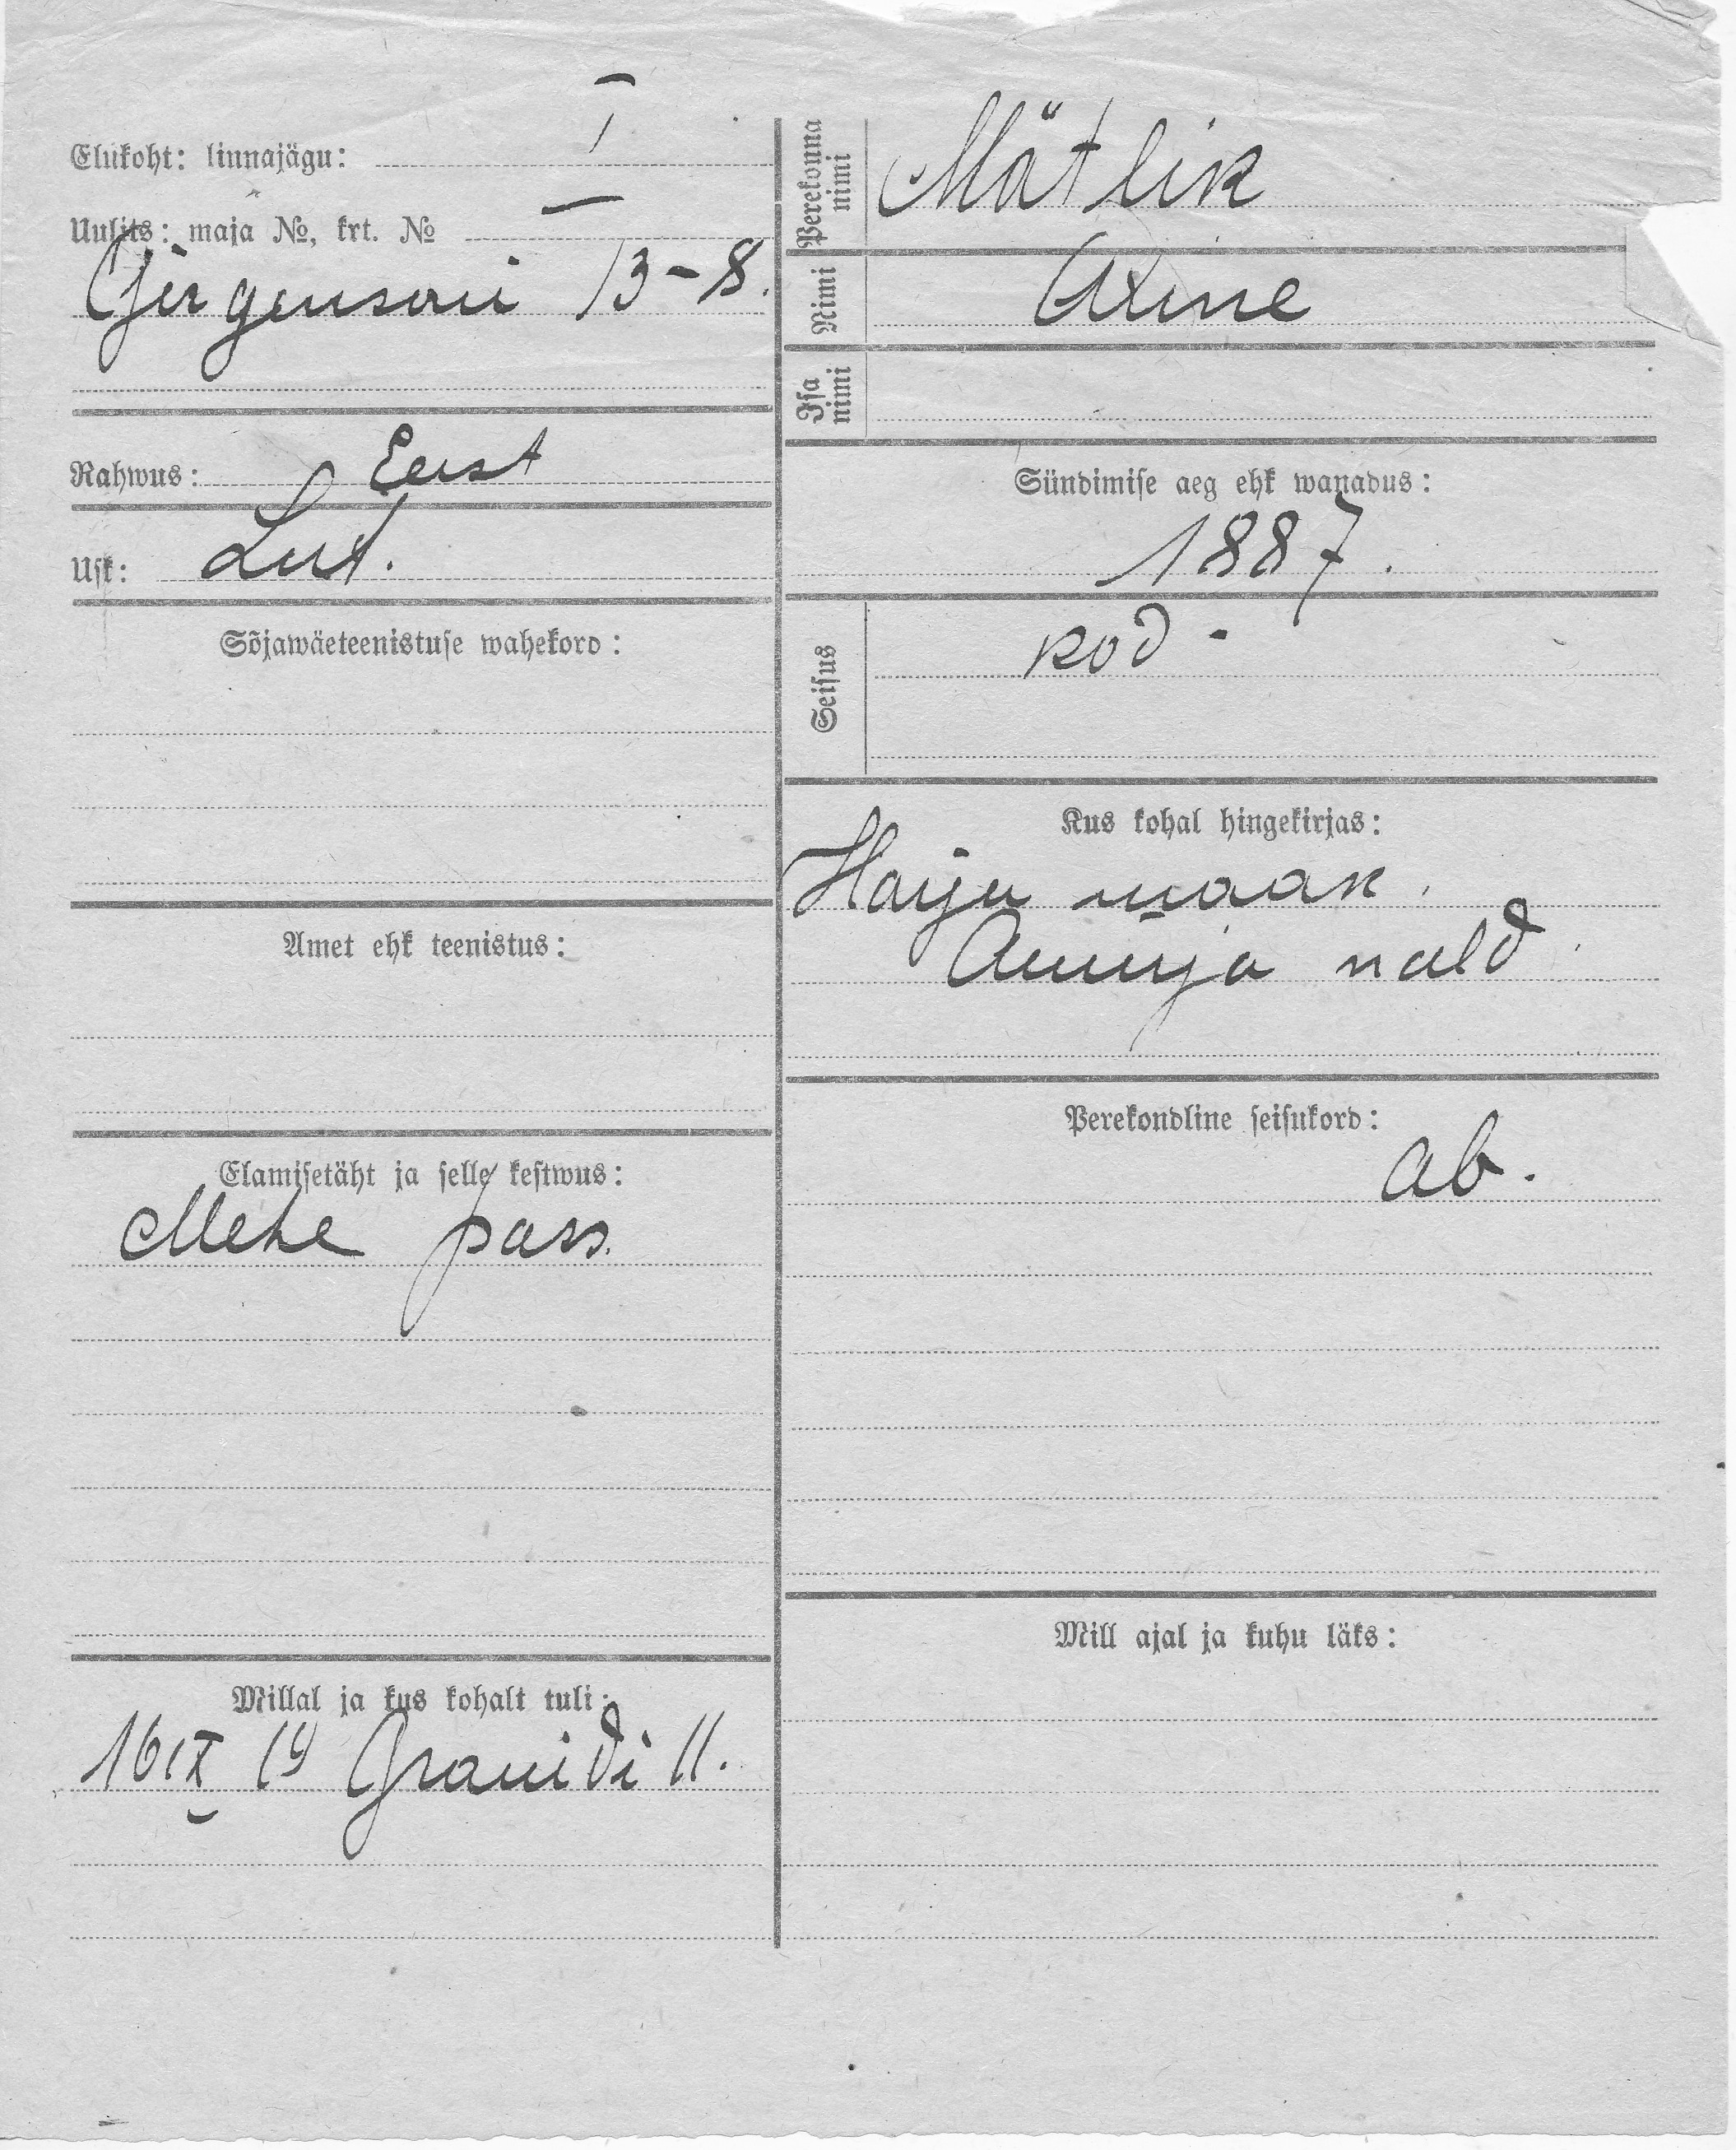 Elukoht: linnajägu: I
Uulits: maja №, krt. №
Girgensoni 13-8.
Rahwus: Eest
Usk: Lut.
Sõjawäeteenistuse wahekord:
Amet ehk teenistus:
Elamisetäht ja selle kestwus:
Mehe pass.
Millal ja kus kohalt tuli:
16 IX 19 Graniidi 11.
Perekonna nimi Mätlik
Nimi
Isa nimi
Sündimise aeg ehk wanadus:
1887.
Seisus kod.
Kus kohal hingekirjas:
Harju maak.
wald
Perekondline seisukord:
ab.
Mill ajal ja kuhu läks: